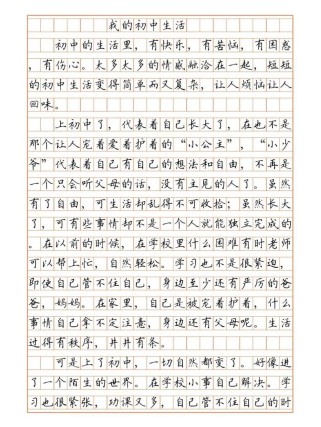 我的初中生活
初中的生活里，有快乐，有苦恼，有困惑
，有伤心。太多太多的情感融洽在一起，短短
的初中生活变得简单而又复杂，让人烦恼让人
回味。
上初中了，代表着自己长大了，在也不是
那个让人宠着爱着护着的“小公主”，“小少
爷”代表着自己有自己的想法和自由，不再是
一个只会听父母的话，没有主见的人了。虽然
有了自由，可生活却乱得不可收拾；虽然长大
了，可有些事情却不是一个人就能独立完成的
。在以前的时候，在学校里什么困难有时老师
可以帮上忙，自然轻松。学习也不是很紧迫，
即使自己管不住自己，身边至少还有严厉的爸
爸，妈妈。在家里，自己是被宠着护着，什么
事情自己拿不定注意，身边还有父母呢。生活
过得有秩序，井井有条。
可是上了初中，一切自然都变了。好像进
了一个陌生的世界。在学校小事自己解决。学
习也很紧张，功课又多，自己管不住自己的时